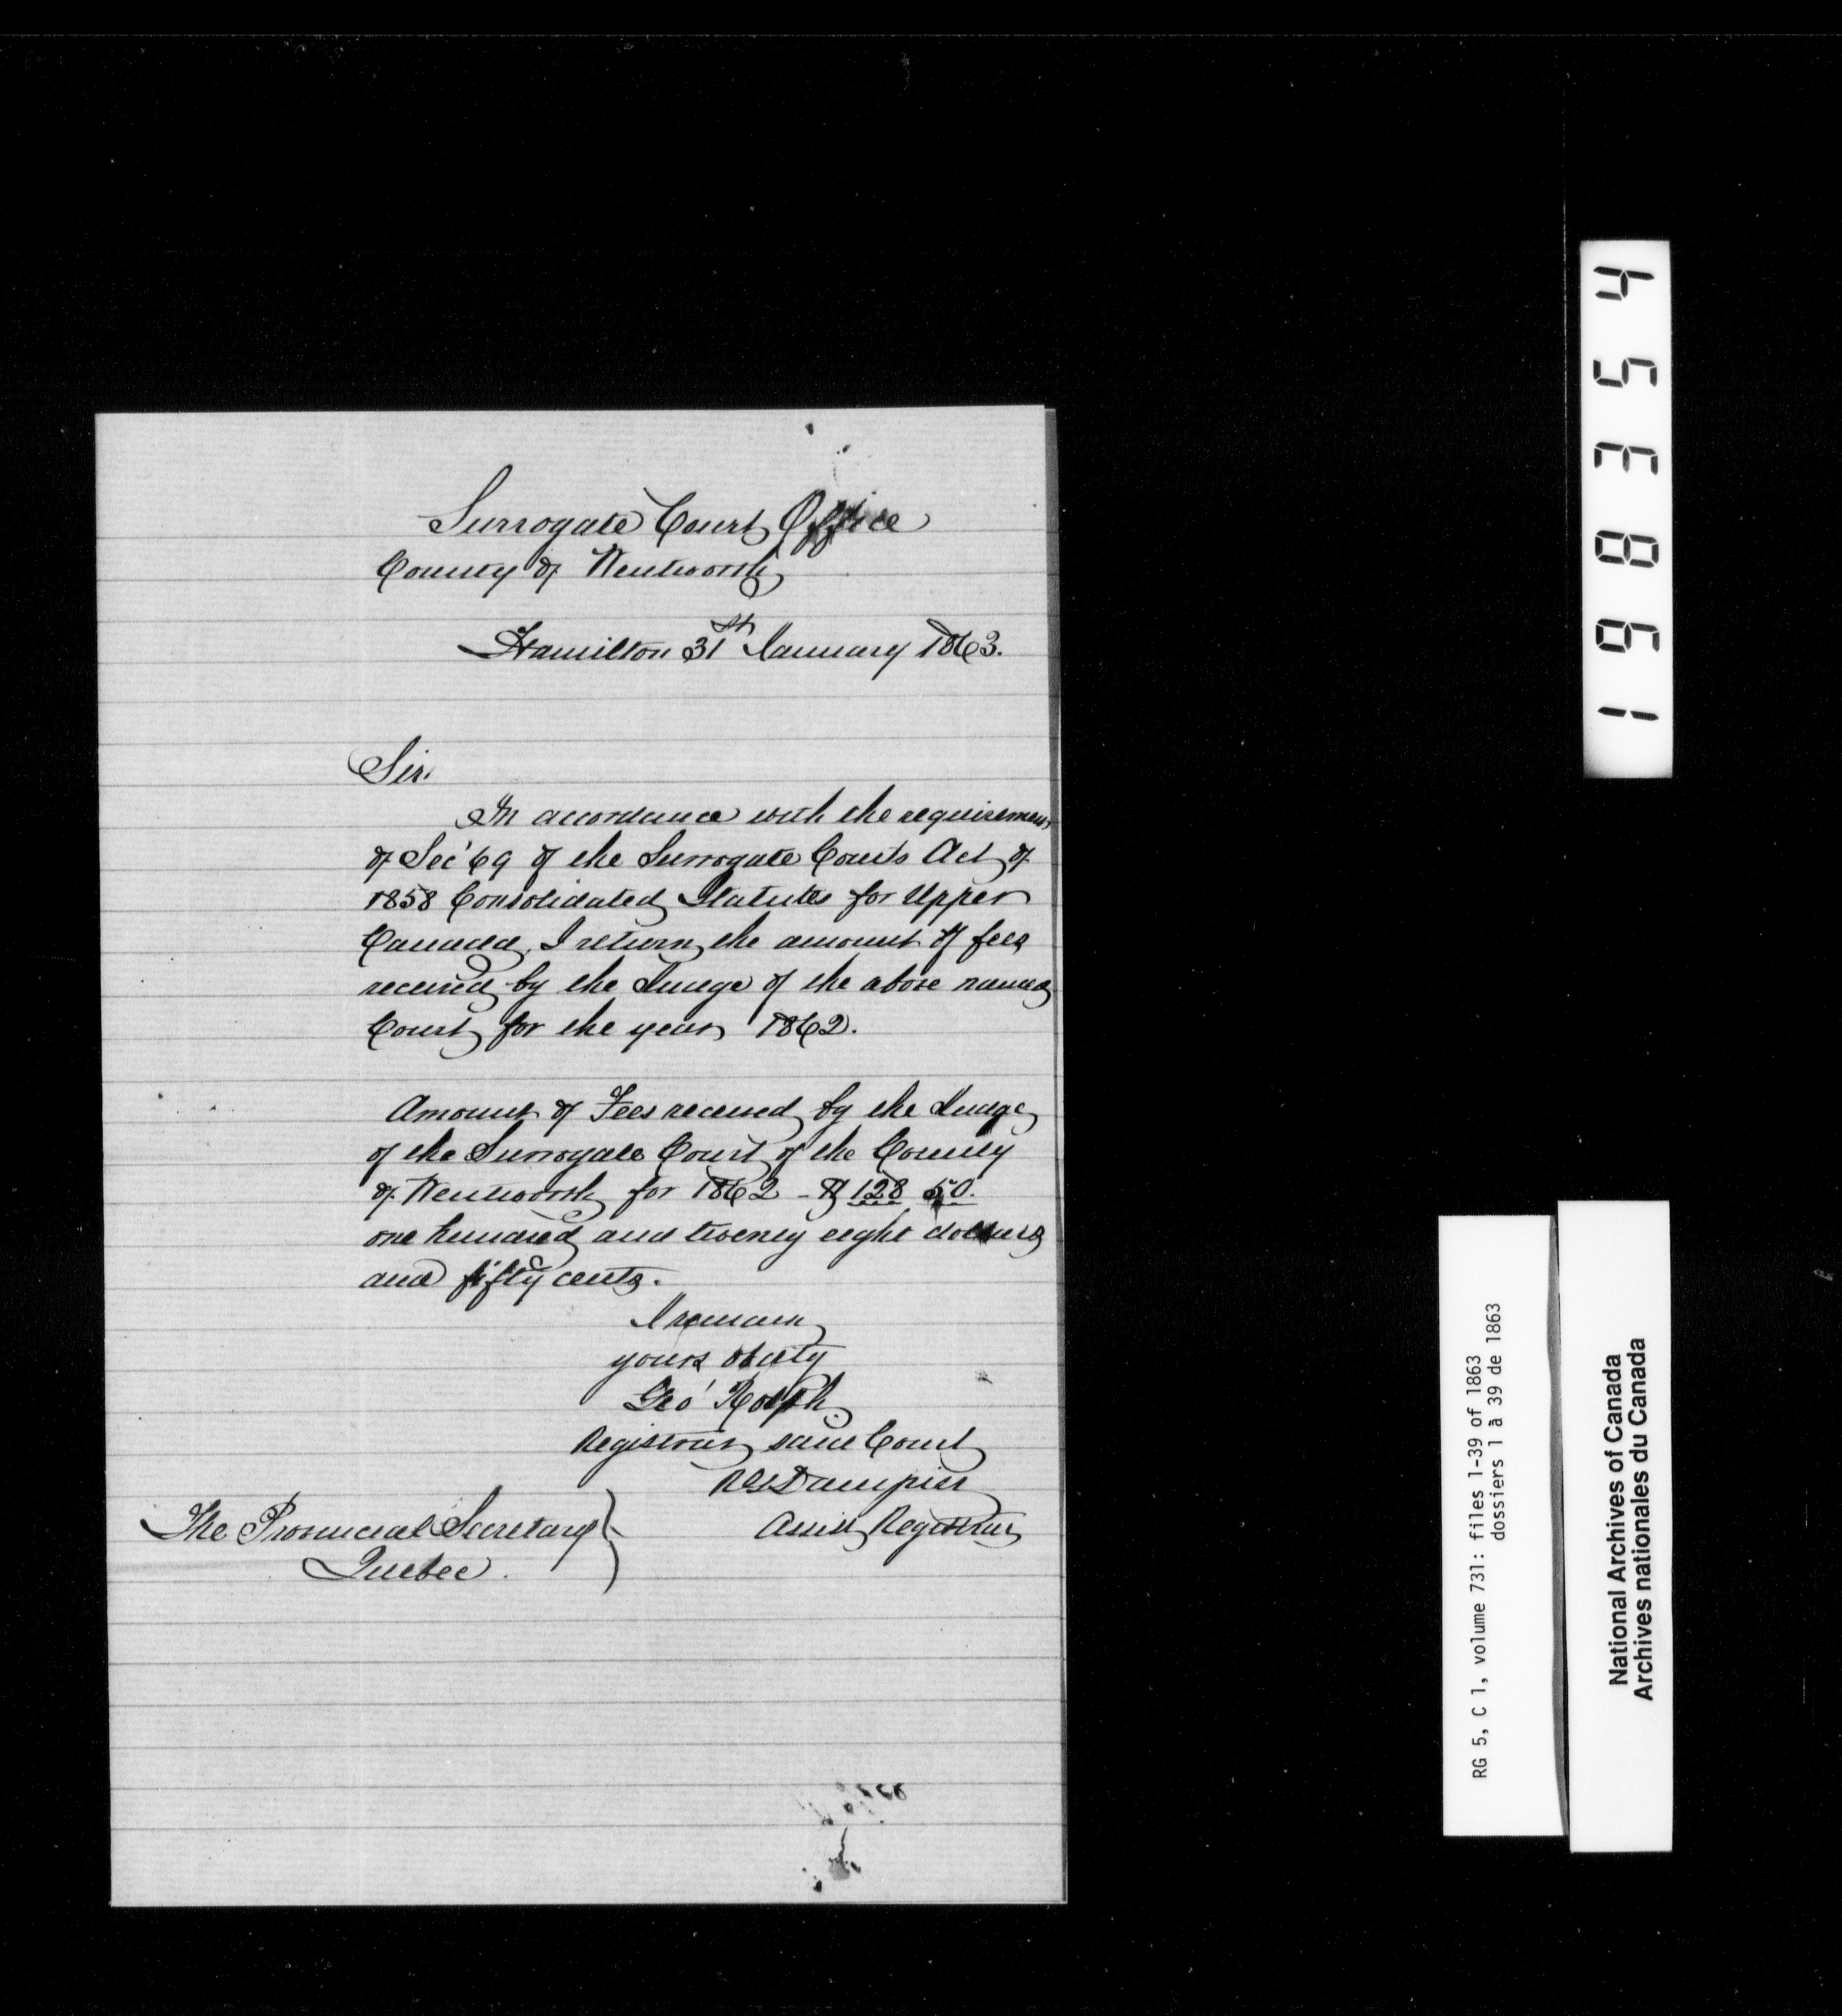 Surrogate Court Office
County of Wentworth
Hamilton 31st January 1863.
Sir.
In accordance with the requirements
of Sec' 69 of the Surrogate Courts Act of
1858 Consolidated Statutes for Upper
Canada, I return the amount of fees
received by the Judge of the above named
Court for the year 1862.
Amount of Fees received by the Judge
of the Surrogate Court of the County
of Wentworth for 1862 - $ 128 50.
one hundred and twenty eight dollars
and fifty cents.
I remain
yours obdtly
Geo' Rolph
Registrar said Court
Dampier
Assist Registrar
The Provincial Secretary
Quebec.
198354
RG 5, C 1, volume 731: files 1-39 of 1863
dossiers 1 à 39 de 1863
National Archives of Canada
Archives nationales du Canada